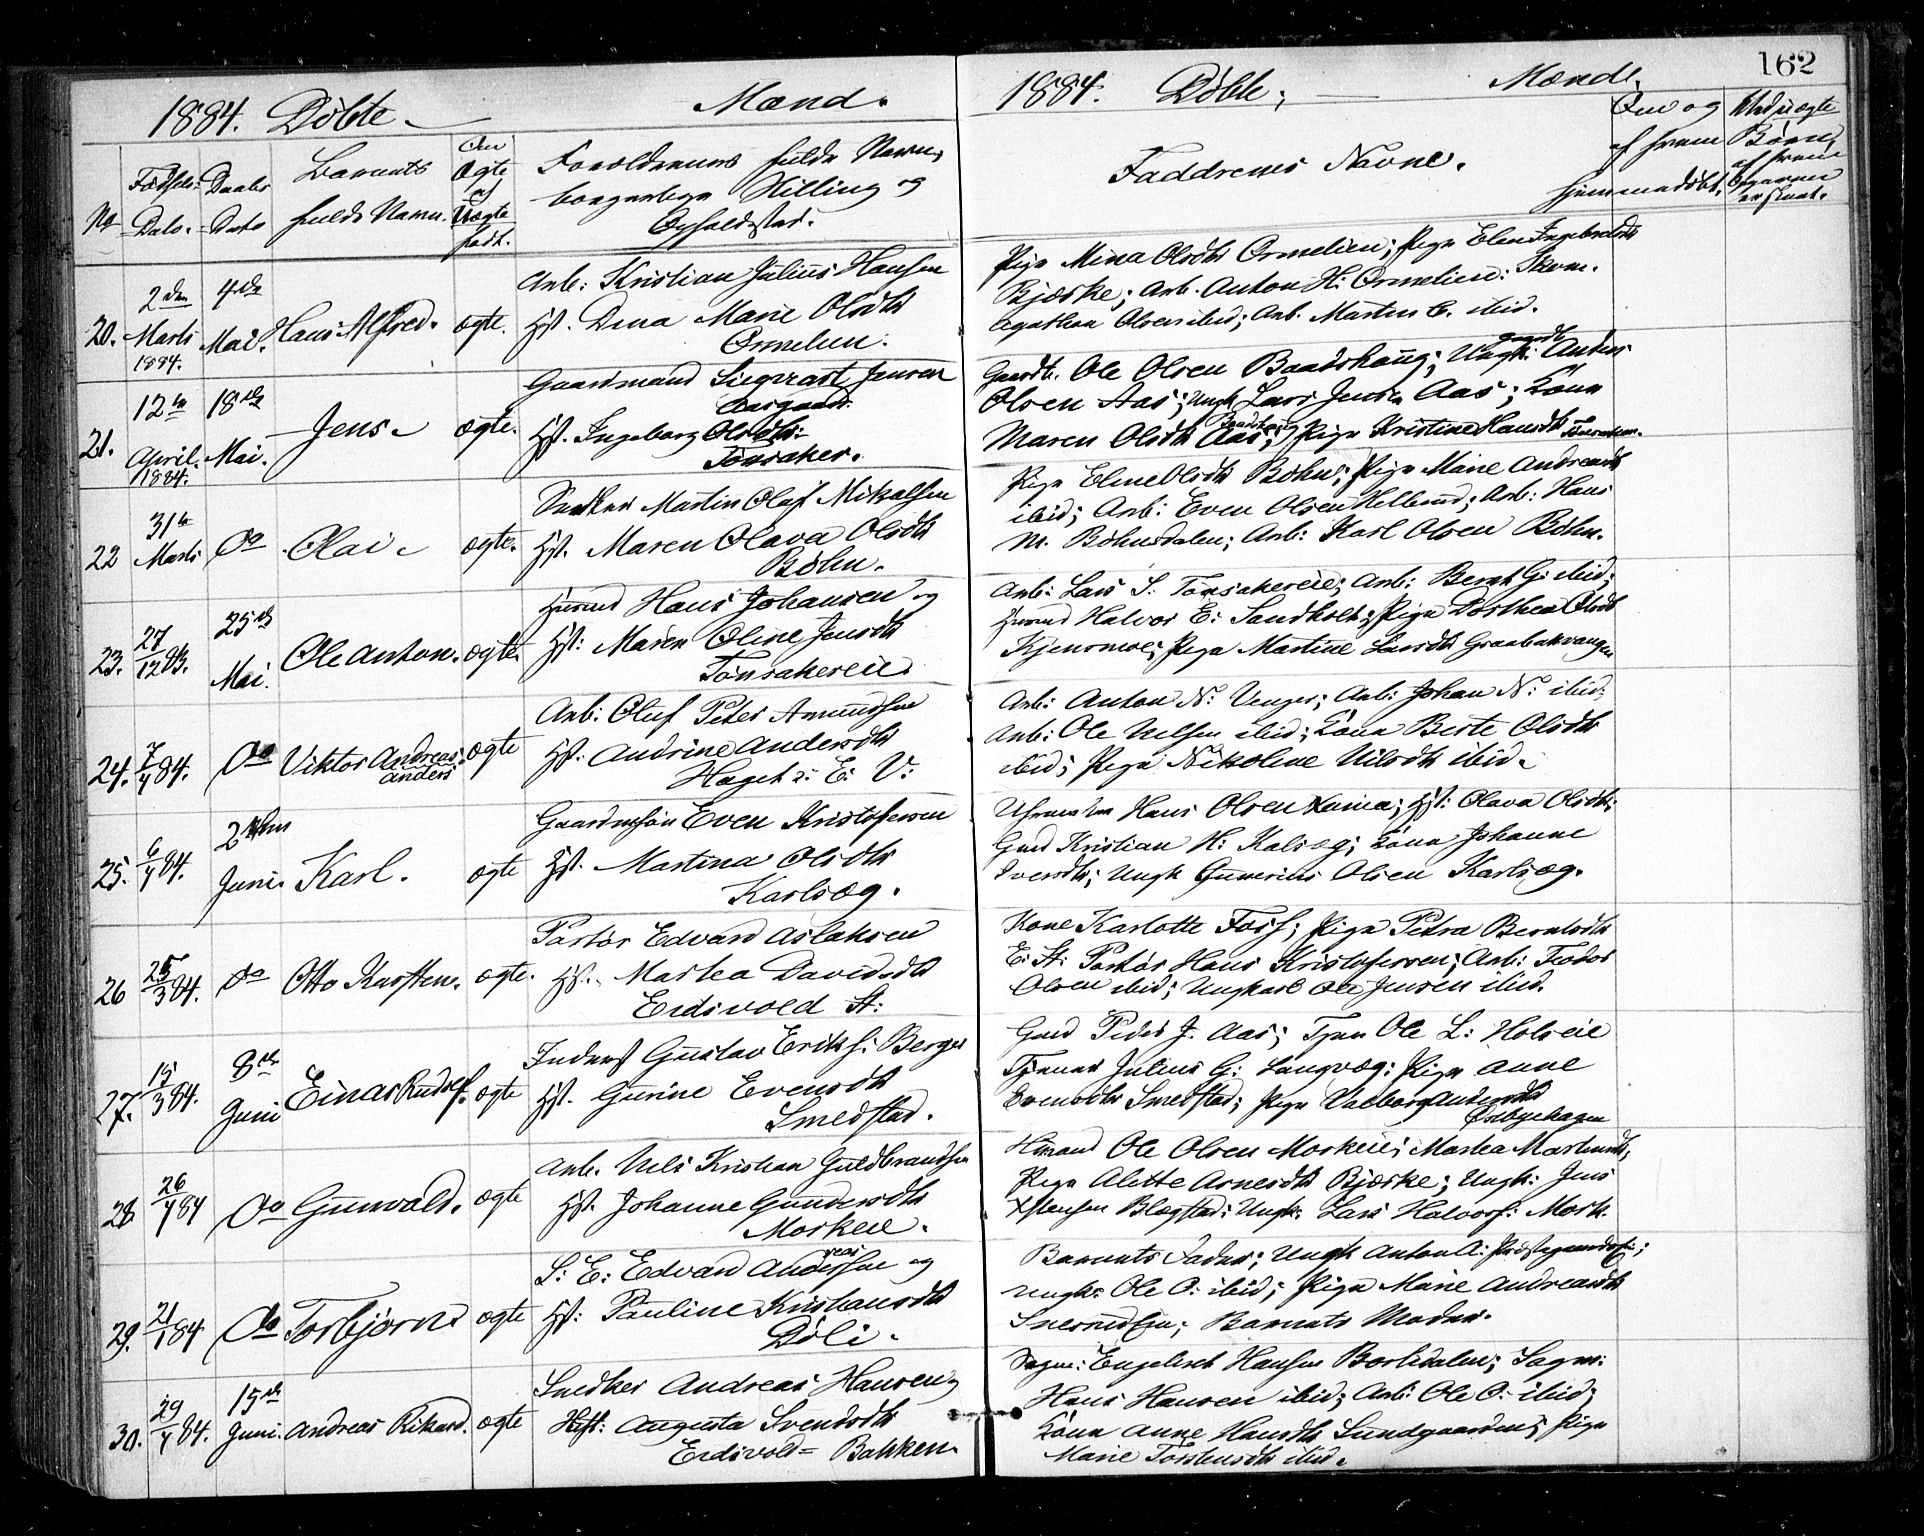 1884. Døbte. Mænd.
No Fødsels Dato. Daabs Dato Barnets fulde Navn. Om Ægte el Uægte født. Forældrenes fulde Navn, borgerlige Stilling og Opholdssted.
20. 2den Marts 1884. 4de Mai. Hans Alfred. ægte. Arb: Kristian Julius Hansen
Hst. Dina Marie Olsdtr
Ormelien.
21. 12te April 1884. 18de Mai. Jens. ægte. Gaardmand Siegvart Jensen
Aasgaard.
Hst. Ingeborg Olsdtr:
Tønsaker.
22 31te Marts Do Olai. ægte. Snekker Martin Olaf Mikalsen
Hst. Maren Olava Olsdtr
Bøhn.
23. 27/12 83. 25de Mai. Ole Anton. ægte. Husmd Hans Johansen og
Hst: Maren Oline Jensdtr
Tønsakereie.
24. 7/4 84. Do Viktor Andreas Anders ægte Arb: Oluf Peter Amundsen
Hst: Andrine Andersdtr
Haget i E: V:
25. 6/4 84. 2den Juni Karl. ægte Gaardmsøn Even Kristofersen
Hst. Martina Olsdtr
Karlsæg.
26 25/3 84. do Otto Karsten. ægte. Portør Edvard Aslaksen
Hst. Martea Davidsdtr
Eidsvold St:
27. 15/3 84. 8de Juni Einar Rudolf. ægte Inderst Gustav Eriks: Berger
Hst. Gurine Evensdtr
Smedstad.
28. 26/4 84 Do Gunvald. ægte Arb. Nils Kristian Guldbrandsen
Hst. Johanne Gundersdtr
Morkeie.
29. 21/1 84 Do Torbjørn. ægte S: E: Edvard Andreassen og
Hst: Pauline Kristiansdtr
Døli.
30. 29/4 84. 15de Juni. Andreas Rikard. ægte Snedker Andreas Hansen og
Hust: Augusta Svendsdtr
Eidsvold- Bakken.
162
1884. Døbte, Mænd.
Faddrenes Navne. Om og af hvem hjemmedøbt. Ved uægte Børn, af hvem Opgaven er skeet.
Pige Mina Olsdtr Ormelien; Pige Elen Ingebretsdtr
Bjørke; Arb. Anton H: Ormelien: Skom.
Agathon Olsen ibid; Arb. Martin E. ibid.
Gaardbr. Ole Olsen Baadshaug; Ungk: Anders
Olsen Aas; Ungk Lars Jensen Aas; Kone
Maren Olsdtr Baadshaug; Pige Kristine Hansdtr Tønsaker.
Pige Eline Olsdtr Bøhn; Pige Marie Andreasdtr
ibid; Arb: Even Olsen Helberud; Arb: Hans
M. Bøhnsdalen; Arb: Karl Olsen Bøhn.
Arb: Lars S: Tønsakereie; Arb: Bernt G: ibid;
Husmd Halvor E: Sandholt; Pige Dorthea Olsdtr
Kjensmoe; Pige Martine Larsdtr
Arb: Anton N: Venger; Arb: Johan N: ibid;
Arb: Ole Nilsen ibid; Kone Berte Olsdtr
ibid; Pige Nikoline Nilsdtr ibid.
Hans Olsen; Hst: Olava Olsdtr;
Gmd Kristian H: Kalsæg; Kone Johanne
Iversdtr; Ungk Gunerius Olsen Karlsæg.
Kone Karlotte Foss; Pige Petra Berntsdtr
E: St: Portør Hans Kristofersen; Arb: Feodor
Olsen ibid; Ungkarl Ole Jensen ibid.
Gmd Peder J. Aas; Tjen Ole L: Holseie
Tjener Julius G: Langvæg: Pige Anne
Evensdtr Smedstad; Pige Valborg Andersdtr
Østbyehagen
Husmand Ole Olsen Morkeie; Martea Martinsdtr,
Pige Alette Arnesdtr Bjørke; Ungk: Jens
Kristensen Blegstad; Ungk. Lars Halvors: Mork.
Barnets Fader; Ungk Anton A:
Ungk: Ole O: ibid; Pige Marie Andreasdtr
Barnets Moder.
Sagm: Engebret Hansen; Sagm:
Hans Hansen ibid; Arb: Ole O: ibid;
Kone Anne Hansdtr Sundgaarden; Pige
Marie Torstensdtr ibid.